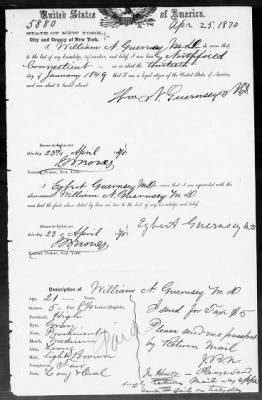 5880
United States of America.
Apr 25, 1870
STATE OF NEW YORK,
City and County of New York.
I, William N. Guernsey M.D. do swear that,
to the best of my knowledge, information, and belief, I was born
Northfield
Connecticut on or about the thirtieth
day of January 1849
that I am a loyal citizen of the United States of America,
and am about to travel abroad.
Wm N. Guernsey M.D.
Sworn to before me
this day 23d April 1870
NOTARY PUBLIC, New York.
I, Egbert Guernsey M.D. do swear that I am acquainted with the
above-named William N. Guernsey M.D.
and that the facts above stated by are true to the best of my knowledge and belief.
Egbert Guernsey M.D.
Sworn to before me
this day 23 of April 1870
NOTARY PUBLIC, New York.
Description of William N. Guernsey M.D.
Age, 21 Years,
Stature, 5 ft
Forehead, High
Eyes, Gray
Nose, Prominent
Mouth, Medium
Chin, Long
Hair, Light Brown
Complexion, Fair
Face, Long & Oval
Paid
I send for Tax $5
Please send me passport
by Return Mail